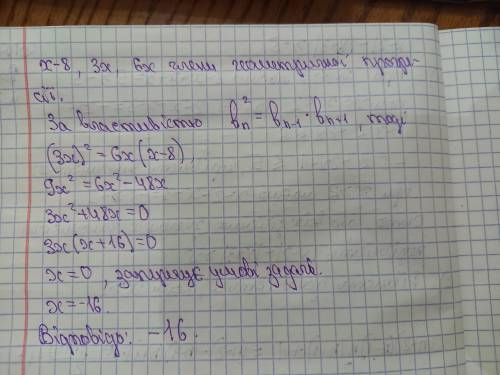 x-8, 3x, 6x члени геометричної прогре-
сії.
За властивістю bₙ² = bₙ₋₁ · bₙ₊₁, тоді
(3x)² = 6x(x-8),
9x² = 6x² - 48x
3x² + 48x = 0
3x(x+16) = 0
x = 0, заперечує умові задачі.
x = -16.
Відповідь: -16.